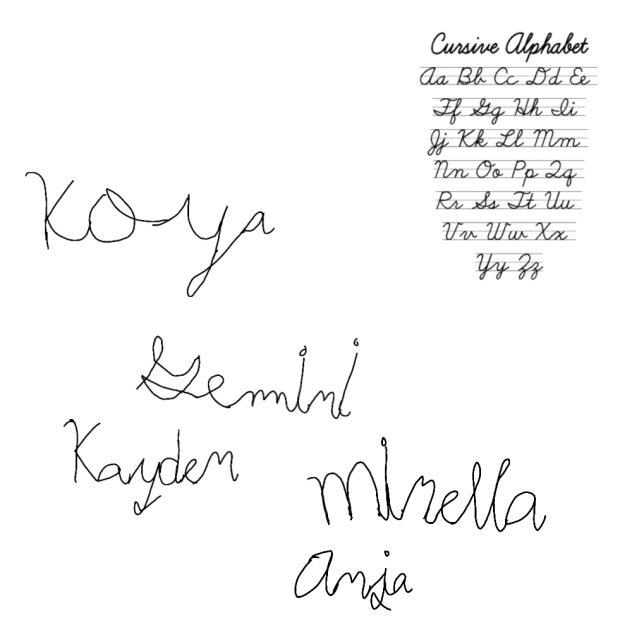 Cursive Alphabet
Aa Bb Cc Dd Ee
Ff Gg Hh Ii
Jj Kk Ll Mm
Nn Oo Pp Qq
Rr Ss Tt Uu
Vv Ww Xx
Yy Zz
Koya
Gemini
Kayden
Mirella
Anja